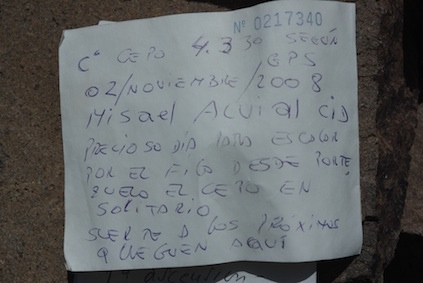 Nº 0217340
Cº CEPO 4.330 SEGÚN
GPS
02/NOVIEMBRE/2008
Misael ACUÑA CID
PRECIOSO DIA PARA ESCALAR
POR EL FILO DESDE PORTE
ZUELO EL CEPO EN
SOLITARIO
SUERTE A LOS PRÓXIMOS
QUE LLEGUEN AQUÍ